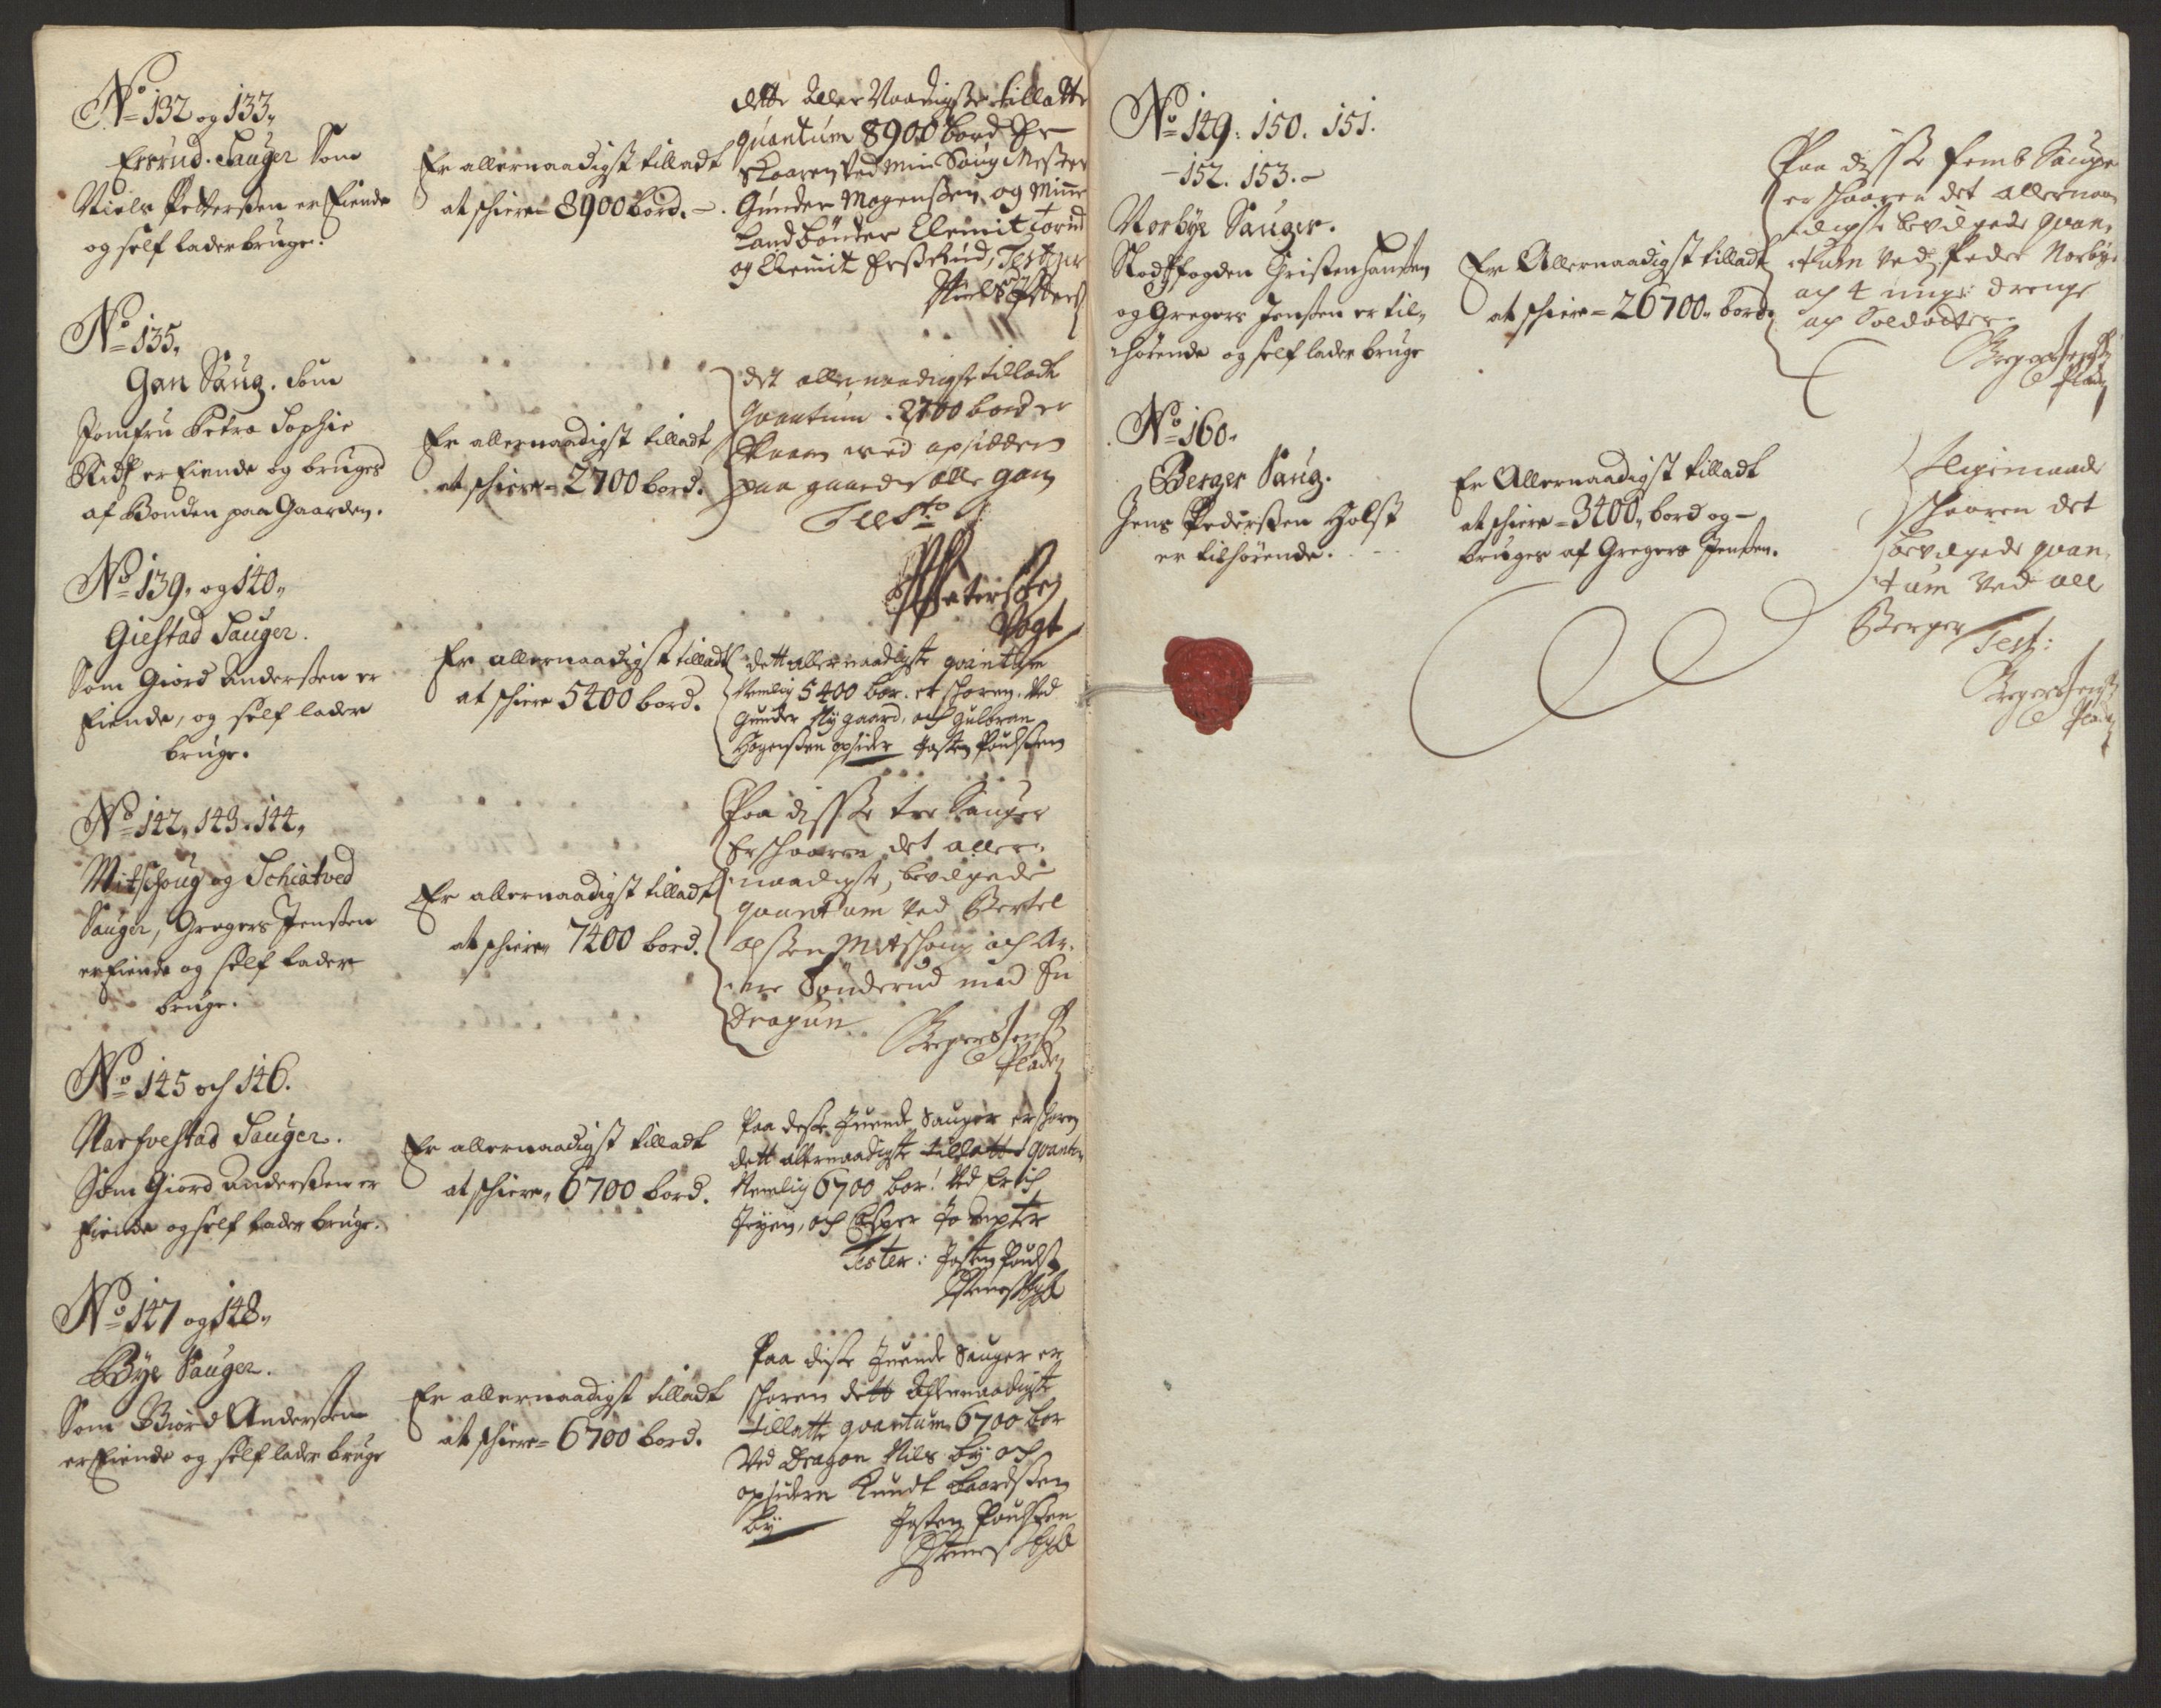 No 132 og 133„
Ersrud. Sauger Som
Niels Pettersen er Eiende
og self lader bruge.
Er allernaadigst tilladt
at schiere = 8900 bord. –
dette aller Naadigste tillatte
quantum 8900 bord Er
skaaren Ved min Saug Mester
Gunder Mogenssen og Minne
Land bönder Clemit Torud
og Clemit Ersserud, Test
Niels
No 135„
Gan Saug. Som
Jomfru Petra Sophie
er Eiende og bruges
af Bonden paa Gaarden.
Er allernaadigst tilladt
at schiere = 2700 bord.
det allernaadigste tilladt
quantum 2700 bord er
skaaren ved opsidderen
paa gaarden olle gan
Test
Petersen
Vogt
No 139„ og 140„
Giestad Sauger.
Som Giord Anderssen er
Eiende, og self lader
bruge.
Er allernaadigst tilladt
at schiere 5400 bord.
dett allernaadigste quantum
Nemlig 5400 bor. er skoren. Ved
Gunder Nygaard, och Gulbran
Hogenssen opsider Josten Poulssen
No 142„ 143„ 144„
Mitschoug og Schiatved
Sauger, Gregers Jenssen
er Eiende og self lader
bruge.
Er allernaadigst tilladt
at schiere„ 7400 bord.
Paa disse tre Sauger
Er schaaren det aller„
naadigste, bevilgede
quantum Ved Bertel
olssen Mitschoug och Ar„
ne Sönderud med En
Dragun
Gregers Jenss
No 145 och 146.
Narfvestad Sauger.
Som Giord Anderssen er
Eiende og self lader bruge.
Er allernaadigst tilladt
at schiere„ 6700 bord.
Paa desse Tuende Sauger er skoren
dett allernaadigste tillatte quantu„
Nemlig 6700 bor! Ved Erich
och Casper
Tester: Josten Poulss
No 147 og 148„
Bye Sauger.
Som Giord Anderssen
er Eiende og self lader bruge
Er allernaadigst tilladt
at schiere = 6700 bord.
Paa disse Tuende Sauger er
skoren dett Allernaadigste
tillatte quantum 6700 bor
Ved Dragon Nils By och
opsidern Knudt Baardssen
By Josten Poulssen
No 149: 150. 151.
– 152. 153. –
Norbye Sauger.
Stadtfogden Christen Hanssen
og Gregers Jenssen er til„
hörende og self lader bruge
Er Allernaadigst tilladt
at schiere = 26700„ bord.
Paa disse femb Sauger
er schaaren det allernaa„
digste bevilgede quan„
tum Ved Peder Norbye
och 4 unge drenge
och Soldatter.
Gregers Jenss
No 160.
Berger Saug.
Jens Pederssen Holst
er tilhörende.
Er Allernaadigst tilladt
at schiere = 3400„ bord og –
bruges af Gregers Jenssen.
Ligemaade
schaaren det
bevilgede quan„
tum Ved oll
Berger Test:
Gregers Jenss